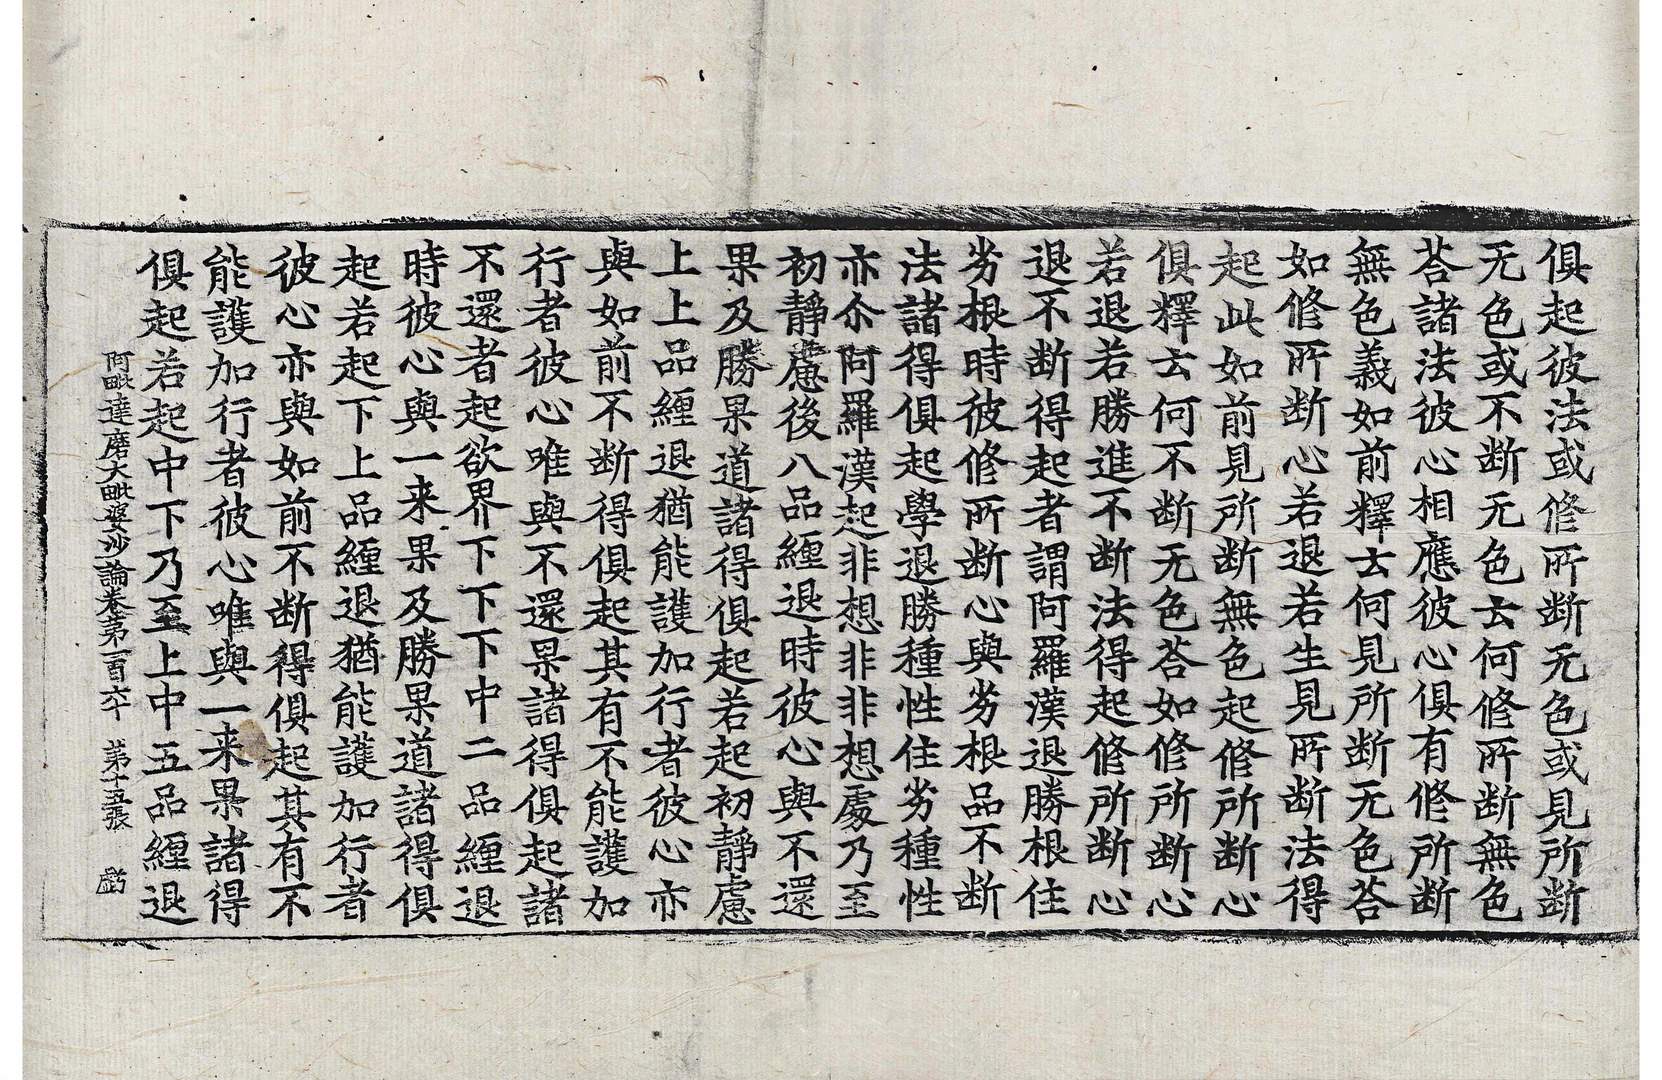 俱起彼法或修所断无色或見所断
无色或不断无色云何修所断無色
荅諸法彼心相應彼心俱有修所断
無色義如前釋云何見所断无色荅
如修所断心若退若生見所断法得
起此如前見所断無色起修所断心
俱釋云何不断无色荅如修所断心
若退若勝進不断法得起修所断心
退不断得起者謂阿羅漢退勝根住
劣根時彼修所断心與劣根品不断
法諸得俱起學退勝種性住劣種性
亦尒阿羅漢起非想非非想處乃至
初靜慮後八品纏退時彼心與不還
果及勝果道諸得俱起若起初靜慮
上上品纏退猶能護加行者彼心亦
與如前不断得俱起其有不能護加
行者彼心唯與不還果諸得俱起諸
不還者起欲界下下下中二品纏退
時彼心與一来果及勝果道諸得俱
起若起下上品纏退猶能護加行者
彼心亦與如前不断得俱起其有不
能護加行者彼心唯與一来果諸得
俱起若起中下乃至上中五品纏退
阿毗達磨大毗婆沙論卷第一百六十 第十五張 虧